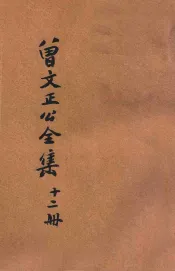 曾文正公全集 十二册